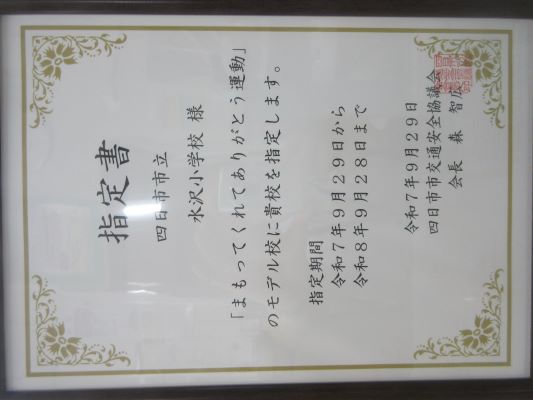 指定書
四日市市立
水沢小学校 様
「まもってくれてありがとう運動」
のモデル校に貴校を指定します。
指定期間
令和7年9月29日から
令和8年9月28日まで
令和7年9月29日
四日市市交通安全協議会
会長 森 智広